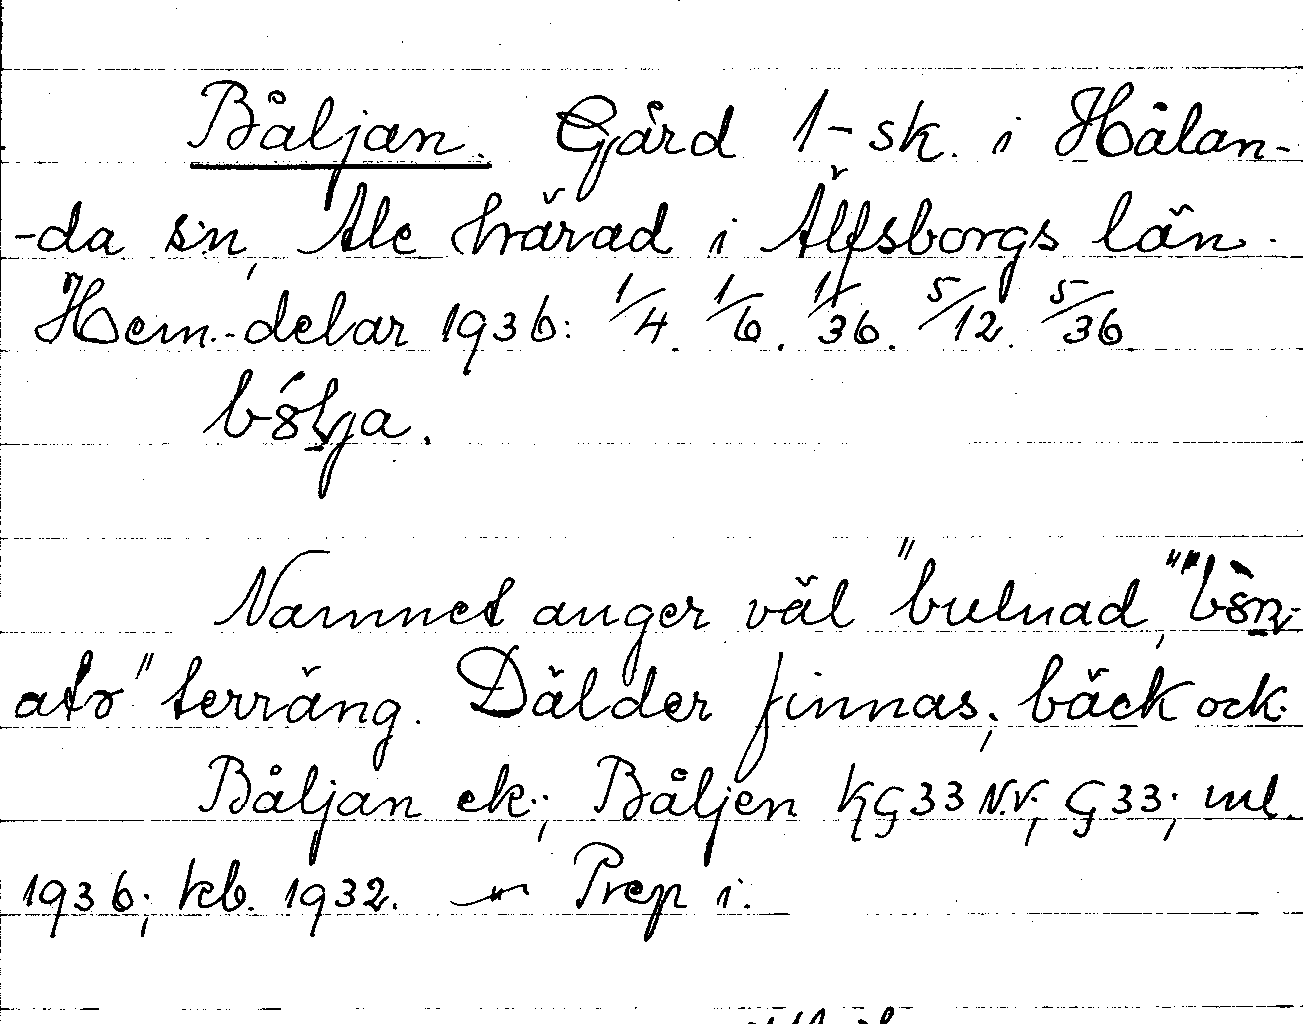 Båljan. Gård 1-sk. i Hålan-
-da s:n, Ale härad i Älfsborgs län.
Hem.-delar 1936: 1/4. 1/6. 1/36. 5/12. 5/36
Namnet anger väl "bulnad,"
terräng. Dälder finnas; bäck ock.
Båljan ek.; Båljen KG33 N.V.; G33; ml.
1936; kb. 1932. — Prep i.